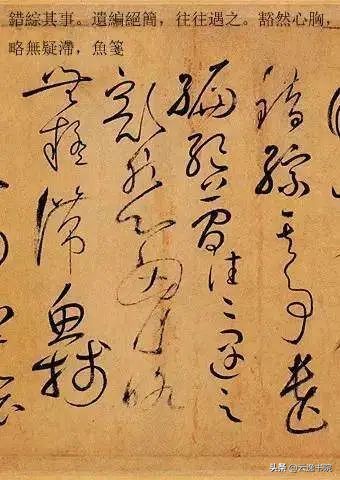 錯綜其事。遺編絕簡，往往遇之。豁然心胸，
略無疑滯，魚箋
錯綜其事遺
編絕簡往往遇之
豁然心胸略
無疑滯魚箋
头条 @云逸书院